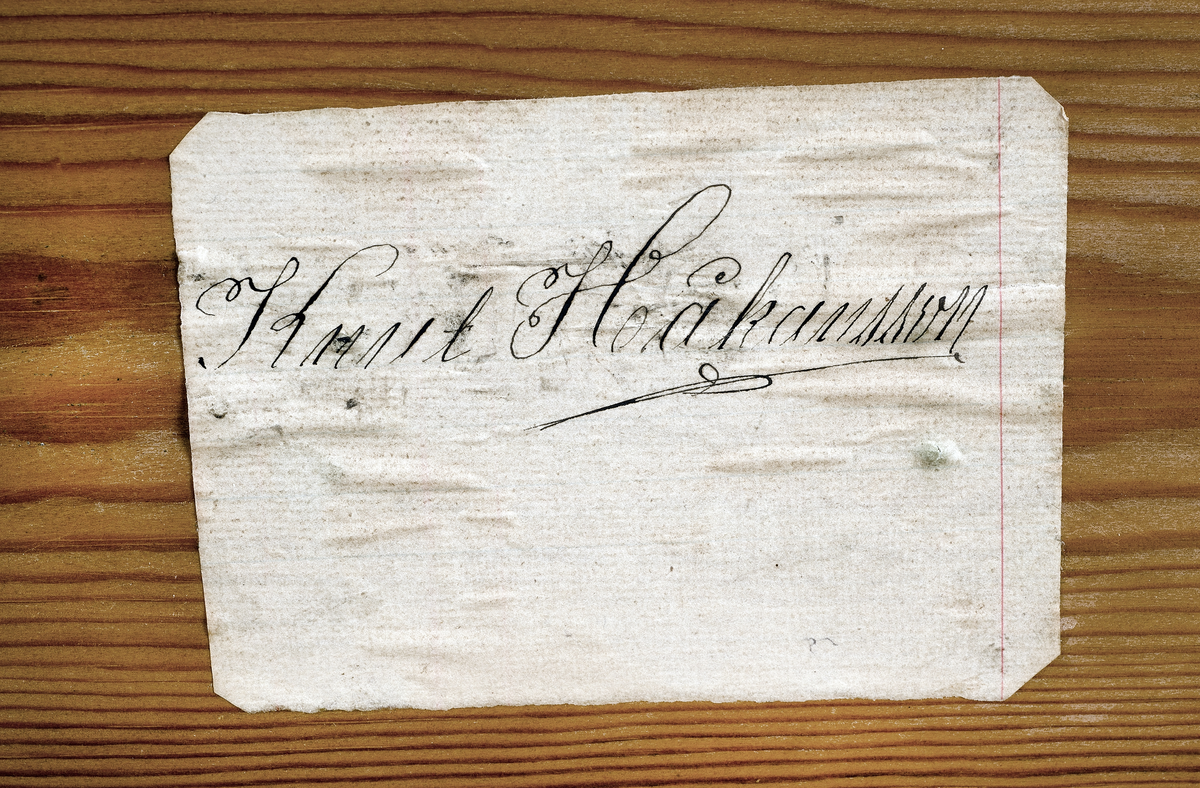 Knut Håkansson